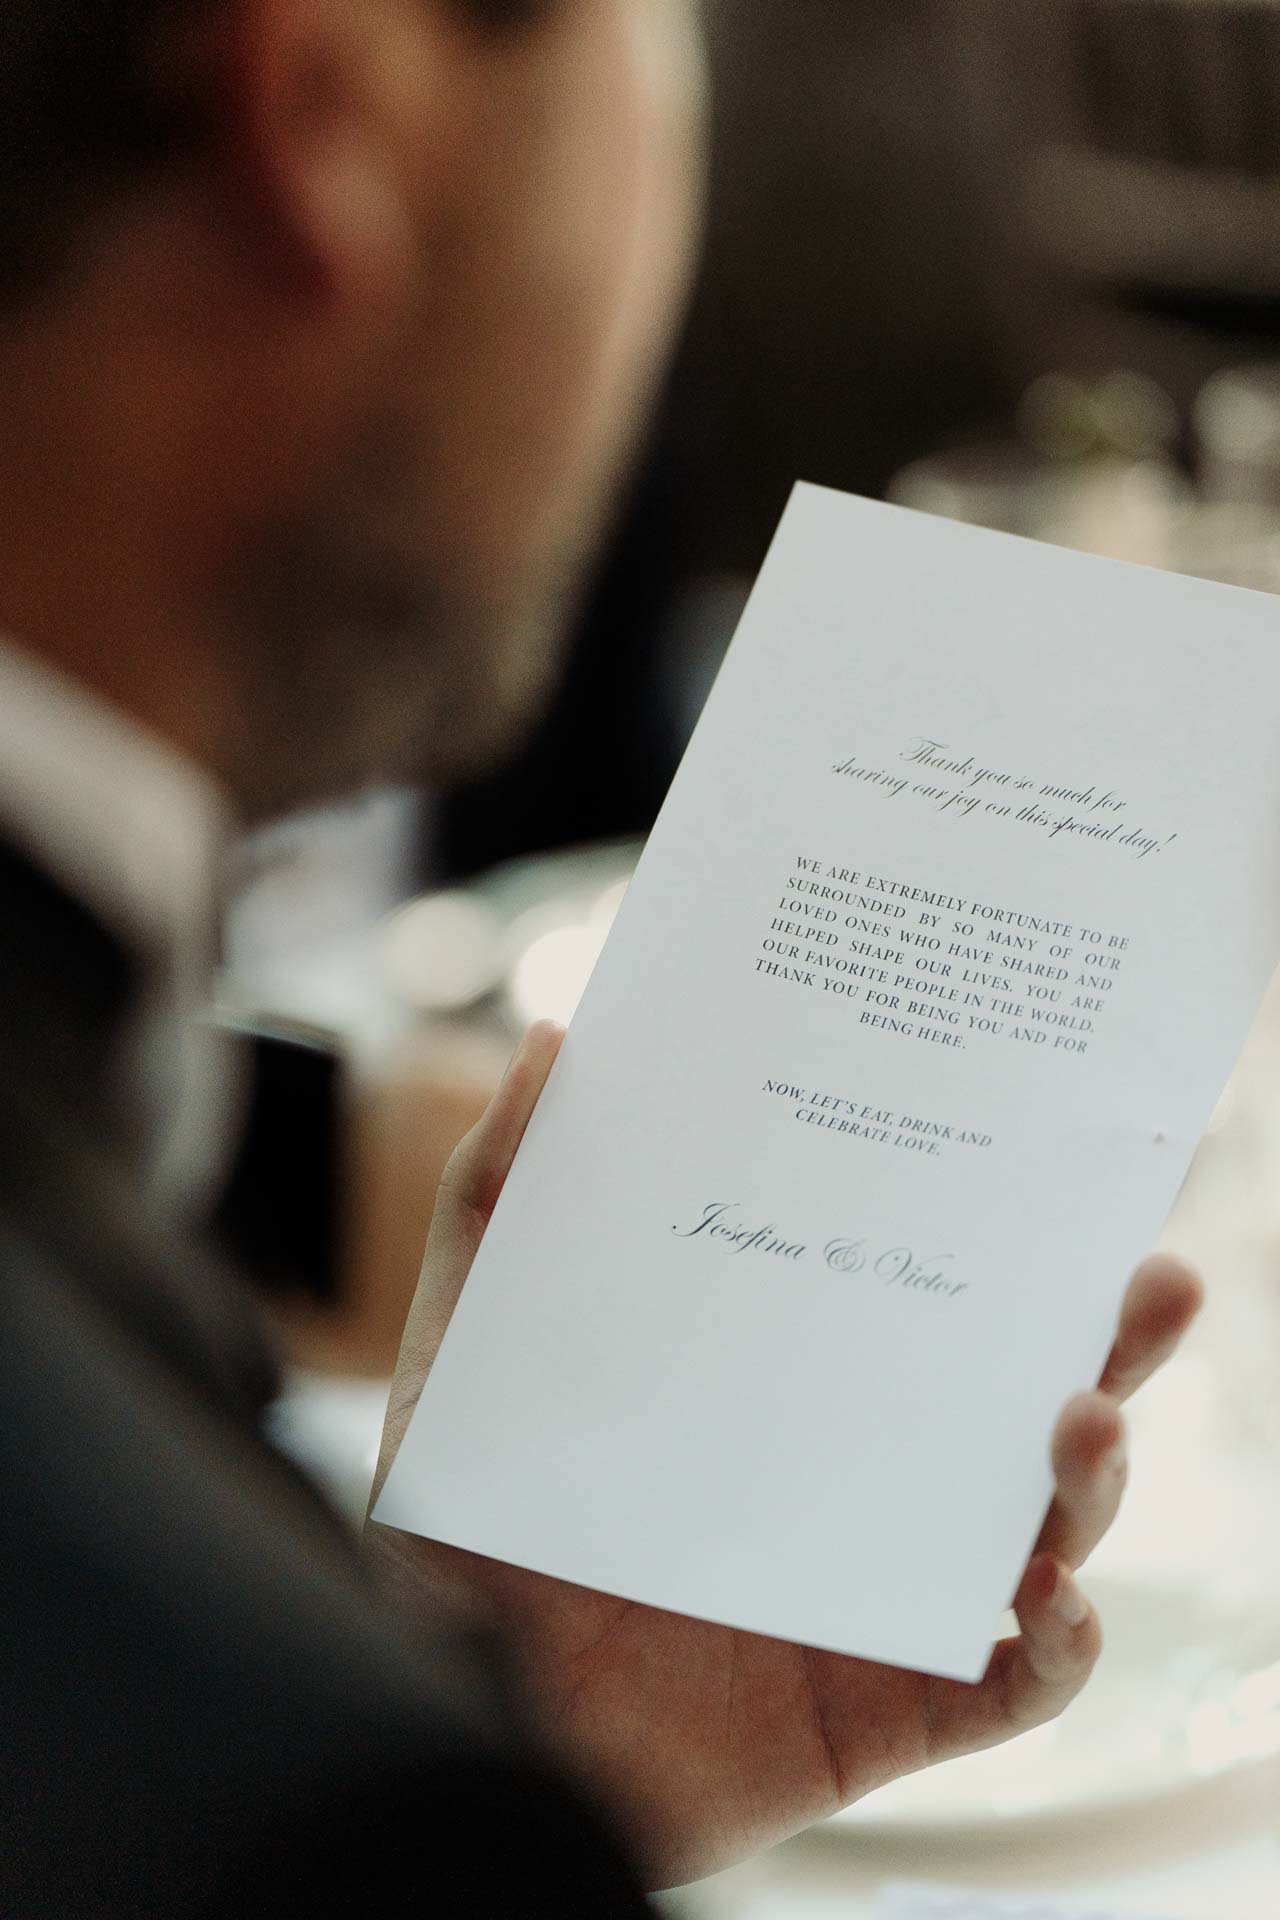 Thank you so much for
sharing our joy on this special day!
WE ARE EXTREMELY FORTUNATE TO BE
SURROUNDED BY SO MANY OF OUR
LOVED ONES WHO HAVE SHARED AND
HELPED SHAPE OUR LIVES. YOU ARE
OUR FAVORITE PEOPLE IN THE WORLD.
THANK YOU FOR BEING YOU AND FOR
BEING HERE.
NOW, LET'S EAT, DRINK AND
CELEBRATE LOVE.
Josefina & Victor